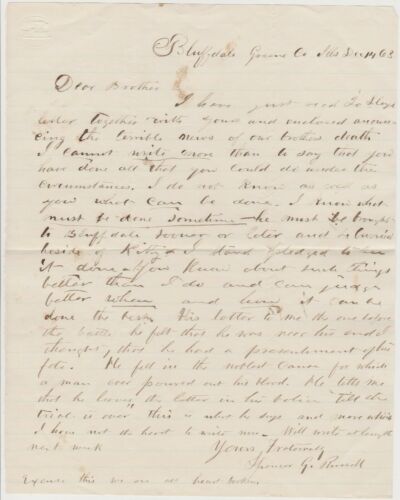 Bluffdale Greene Co Ills Dec 14 63
Dear Brother
I have just recd Lo Lloyd
letter together with yours and enclosed announ
cing the terrible news of our brothers death
I cannot write more than to say that you
have done all that you could do under the
circumstances. I do not know as well as
you what can be done. I know what
must be done sometime - he must be brought
to Bluffdale sooner or later and buried
beside of Kitty & I stand pledged to see
it done - You know about such things
better than I do and can judge
better when and how it can be
done the best. His letter to me the one before
the battle he felt that he was near his end I
thought, that he had a presentment of his
fate. He fell in the noblest cause for which
a man ever poured out his blood. He tells me
that he leaves the letter in his till the
trial is over, this is what he says and more which
I have not the heart to write now. Will write at length
next week Yours Fraternally
Spencer G. Russell
Excuse this we are all heart broken